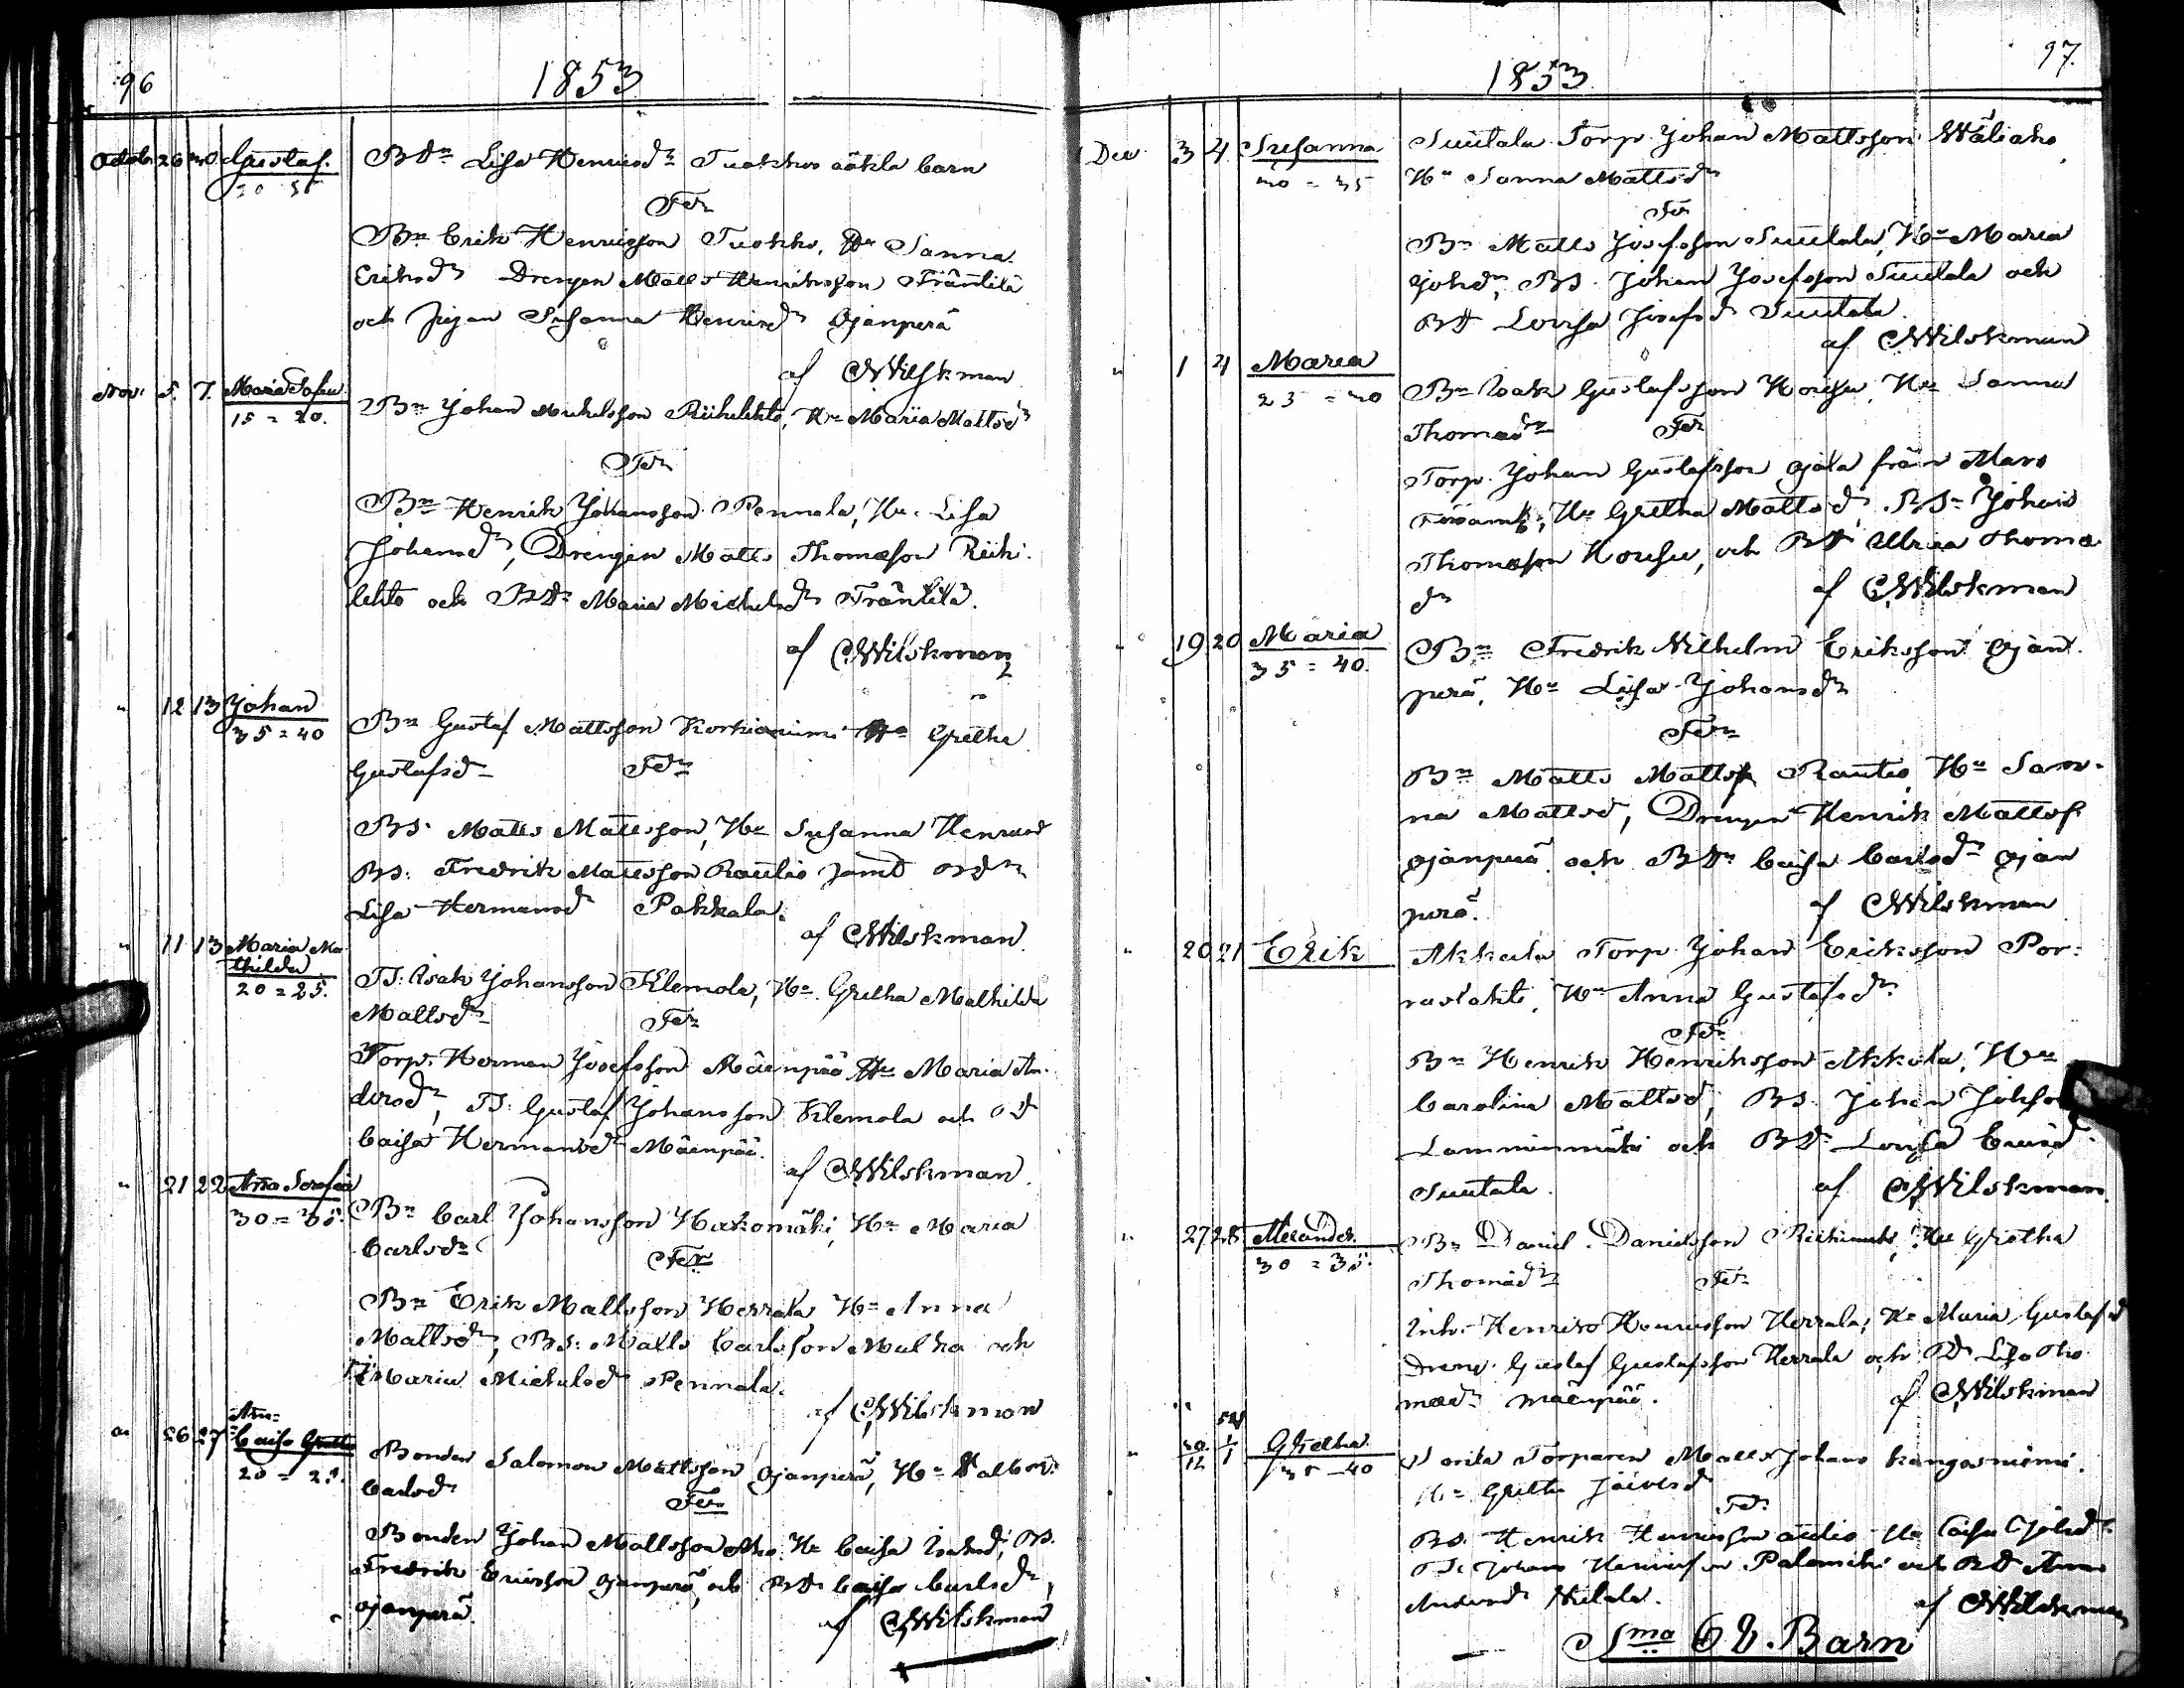 96
1853
Octob. 26 30 Gustaf.
BDr Lisa Henriksdr Tuokko oäkta barn
Fdr
Bn Erik Henricsson Tuokko, Hu Sanna
Eriksdr Drengen Matts Henriksson Fräntilä
och Pigan Susanna Henricsdr Ojanperä
af CWilskman
Nov. 5. 7. Maria Sofia
15 = 20.
Bn Johan Michelsson Riihilehto, Hu Maria Mattsdr
Fdr
Bn Henrik Johansson Pennala, Hu Lisa
Johansdr, Drengen Matts Thomasson Riihi
lehto och BDr Maria Michelsdr Fräntilä.
af CWilskman
" 12 13 Johan
35 = 40
Bn Gustaf Mattsson Korkianiemi Hu Gretha
Gustafsdr
Fdr
BS. Matts Mattsson, Hu Susanna Henricsd
BS. Fredrik Mattsson Rautio samt BDr
Lisa Hermansd Pakkala.
af CWilskman.
" 11 13 Maria Ma
thilda
20 = 25.
TS. Isak Johansson Klemola, Hu Gretha Mathilda
Mattsdr
Fdr
Torp. Herman Josefsson Mäenpää Hu Maria An
dersdr, TS. Gustaf Johansson Klemola och TD
Caisa Hermansdr Mäenpää.
af CWilskman.
" 21 22 Anna Serafia
30 = 35.
Bn Carl Johansson Hakomäki, Hu Maria
Carlsdr
Fdr
Bn Erik Mattsson Herrala Hu Anna
Mattsdr, BS. Matts Carlsson Mulka och
Pi. Maria Michelsdr Pennala.
af CWilskman
" 26 27 Caisa Gretha
Bonden Salomon Mattsson Ojanperä, Hu Walbor:
Carlsdr
Fdr
Bonden Johan Mattsson Aho Hu Caisa Isaksd, BS.
Fredrik Ericsson Ojanperä, och BDr Caisa Carlsdr,
Ojanperä.
af CWilskman
97.
1853.
Dec 3 4 Susanna
30 = 35
Suutala Torp. Johan Mattsson Wäliaho
Hu Sanna Mattsdr
Fdr
Bn Matts Josefsson Suutala, Hu Maria
Johdr, BS. Johan Josefsson Suutala och
BD Lovisa Josefsd Suutala.
af CWilskman
" 1 4 Maria
25 = 30
Bn Isak Gustafsson Houhu, Hu Sanna
Thomasdr
Fdr
Torp. Johan Gustafsson Ojala från Alavo
Hu Gretha Mattsdr, BS. Johan
Thomasson Houhu, och BD Ulrica Thomas
dr
af CWilskman
" 19 20 Maria
35 = 40.
Bn Fredrik Wilhelm Eriksson Ojan
perä, Hu Lisa Johansdr
Fdr
Bn Matts Mattss. Rautio, Hu San
na Mattsd, Drengen Henrik Mattss.
Ojanperä och BDr Caisa Carlsdr Ojan
perä.
af CWilskman
" 20 21 Erik
Akkala Torp. Johan Eriksson Por:
raslahti, Hu Anna Gustafsdr
Fdr
Bn Henrik Henriksson Akkola, Hu
Carolina Mattsd, BS. Johan Johsson
Lamminmäki och BD Lovisa Ericsd.
Suutala.
af CWilskman.
" 27 28 Alexander.
30 = 35.
Bn Daniel Danielsson Hu Gretha
Thomasdr
Fdr
Inh. Henric Henricsson Herrala, Hu Maria Gustafsd
Dreng. Gustaf Gustafsson Herrala och PD Lisa Tho
masdr Mäenpää.
af CWilskman
" 30/12 54 1/1 Gretha
35 = 40
Torparen Matts Johans. Kangasniemi.
Hu Gretha
Fdr
BS. Henrik Henricsson Hu Caisa Johdr
TS. Johans Henricsson Palomäki och BD Anna
Andersdr
af CWilskman
Sma 62. Barn